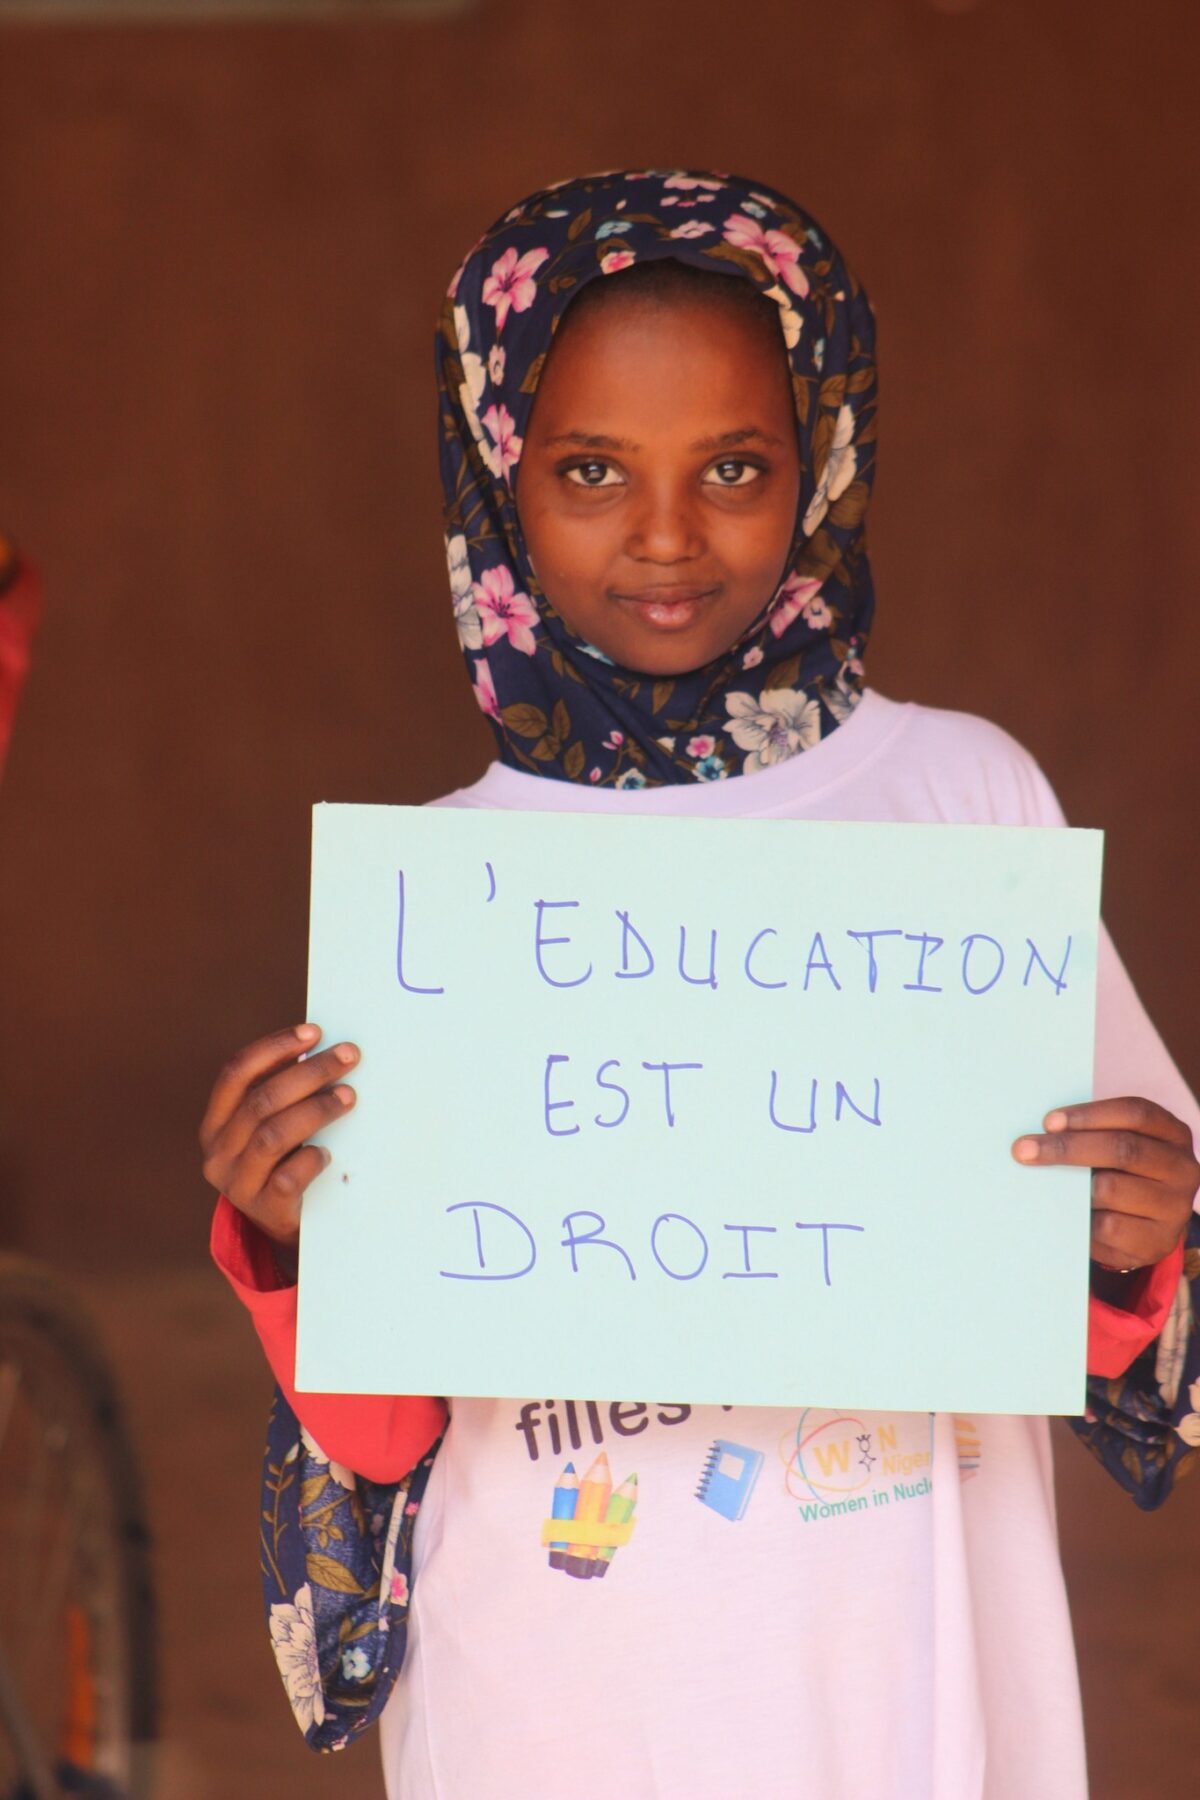 L'EDUCATION
EST UN
DROIT
filles
WiN
Niger
Women in